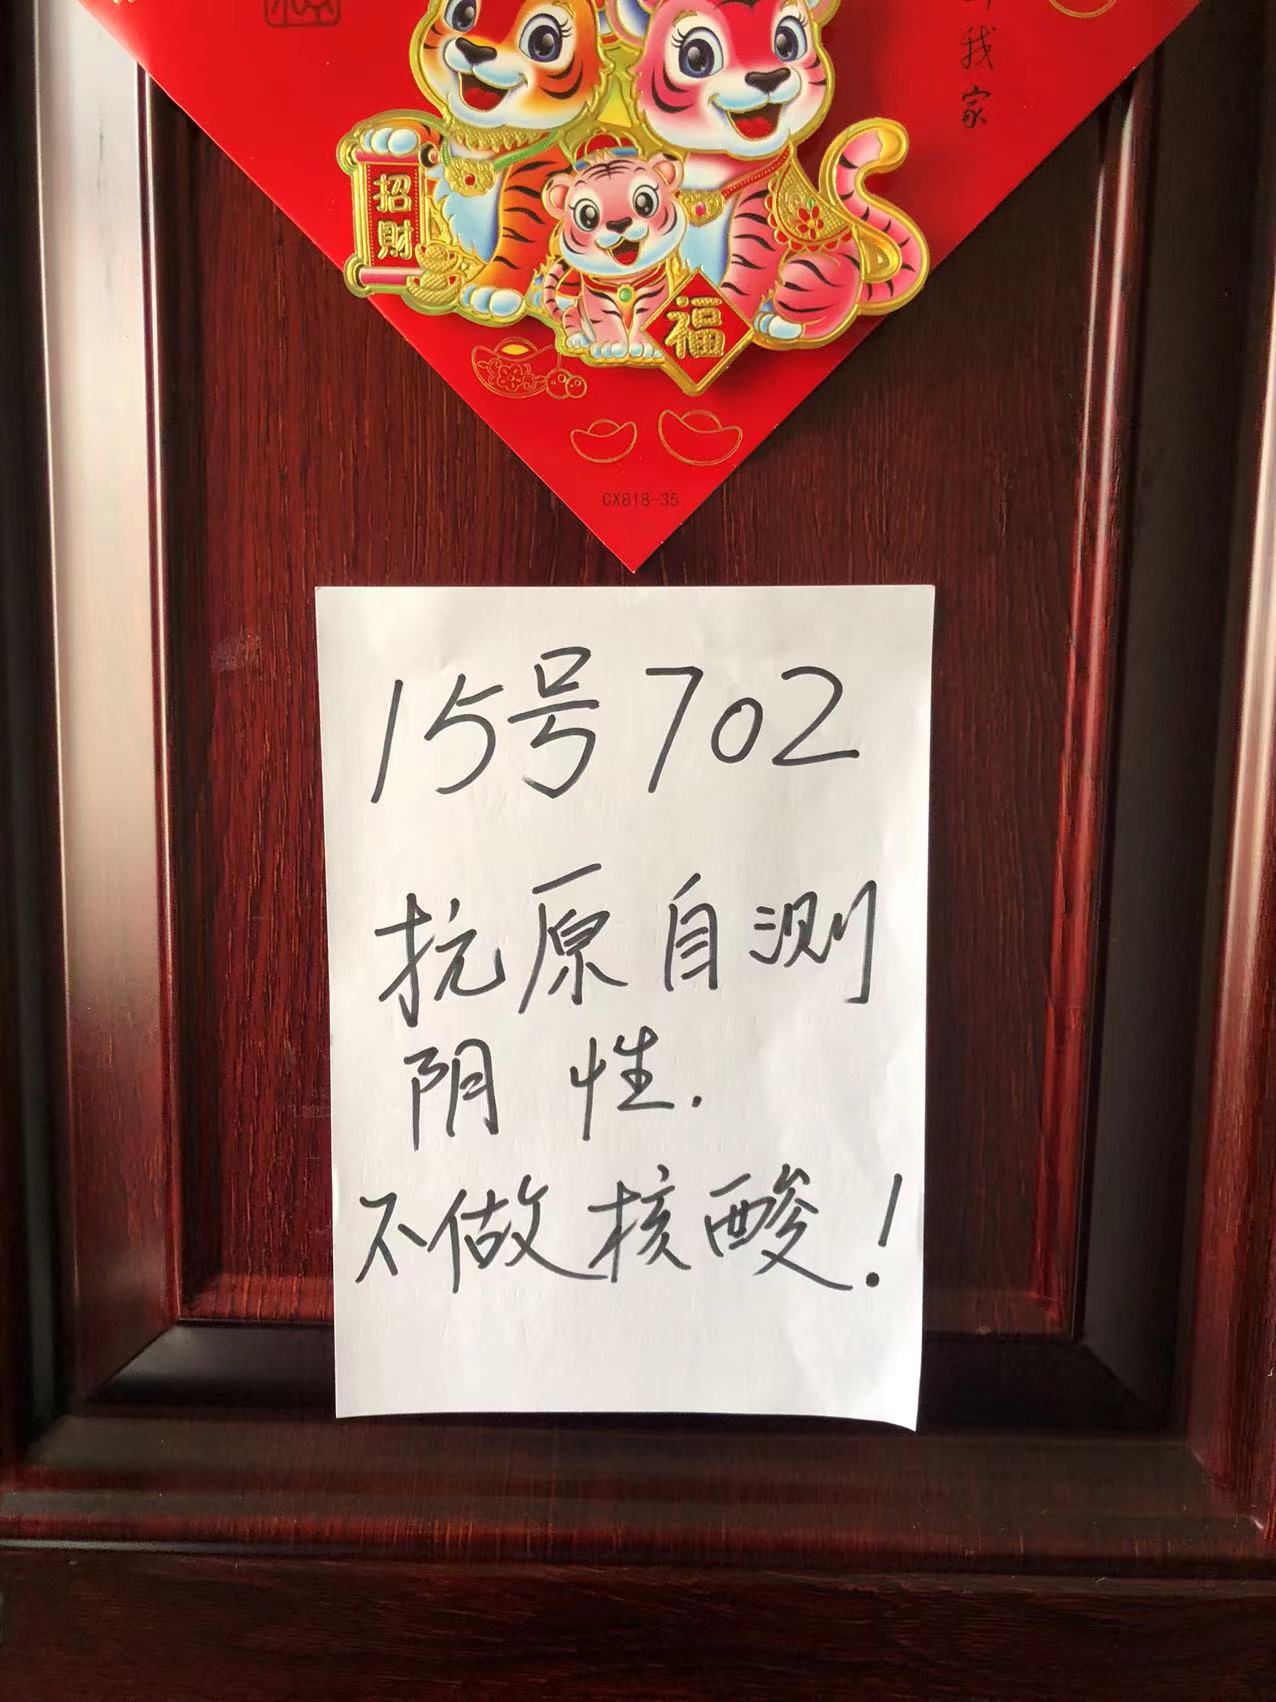 我家
招財
福
CX818-35
15号702
抗原自测
阴性.
不做核酸!